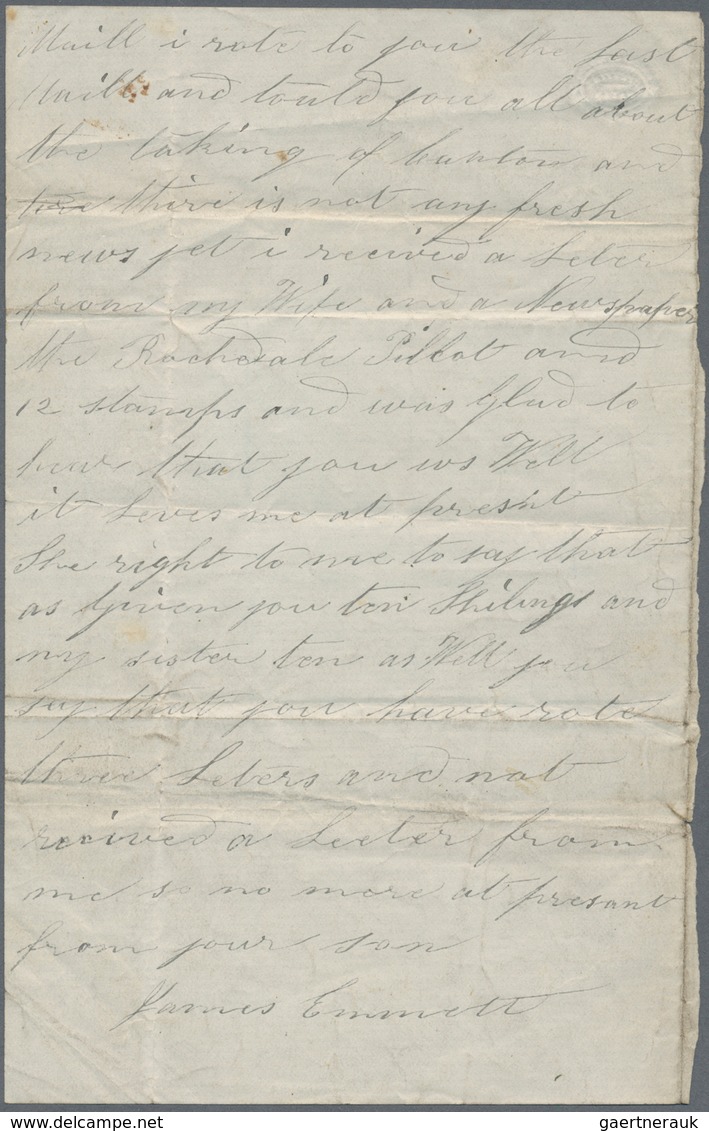 Maill i rote to you the last
Maill and tould you all about
the taking of Canton and
thire is not any fresh
news yet i recived a Leter
from my Wife and a Newspaper
the Rochedale Pillot and
12 stamps and was Glad to
hear that you ws Well
it Leves me at present
She right to me to say that
as Given you ten Shilings and
my sister ten as Well you
say that you have rote
three Leters and not
recived a Leeter from
me so no more at presant
from your son
James Emmett
gaertnerauk